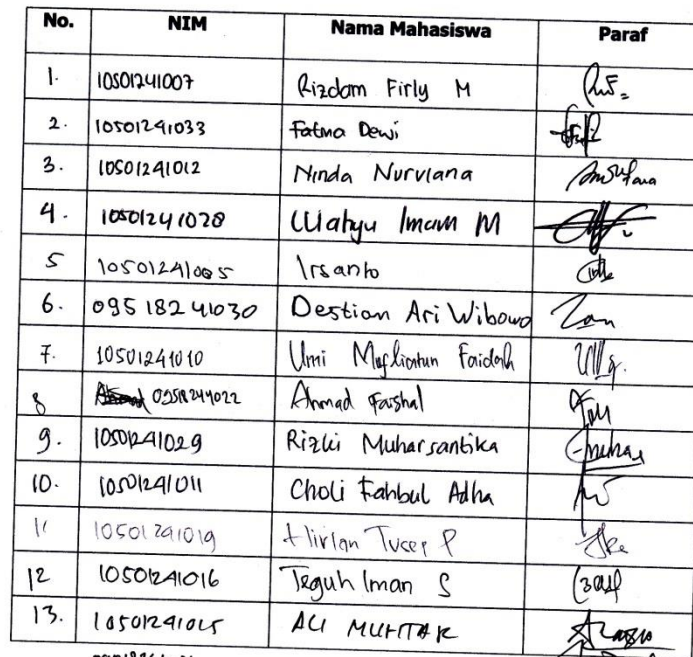 No. NIM Nama Mahasiswa Paraf
1. 10501241007 Rizdam Firly M
2. 10501241033 Fatma Dewi
3. 10501241012 Ninda Nurviana
4. 10501241028 Wahyu Imam M
5 10501241005 Irsanto
6. 09518241030 Destian Ari Wibowo
7. 10501241010 Umi Faidah
8 Ahmad Faishal
9. 10501241029 Rizki Muharsantika
10. 10501241011 Choli Adha
11 10501241019 P
12 10501241016 Teguh Iman S
13. 10501241015 ALI MUHTAR